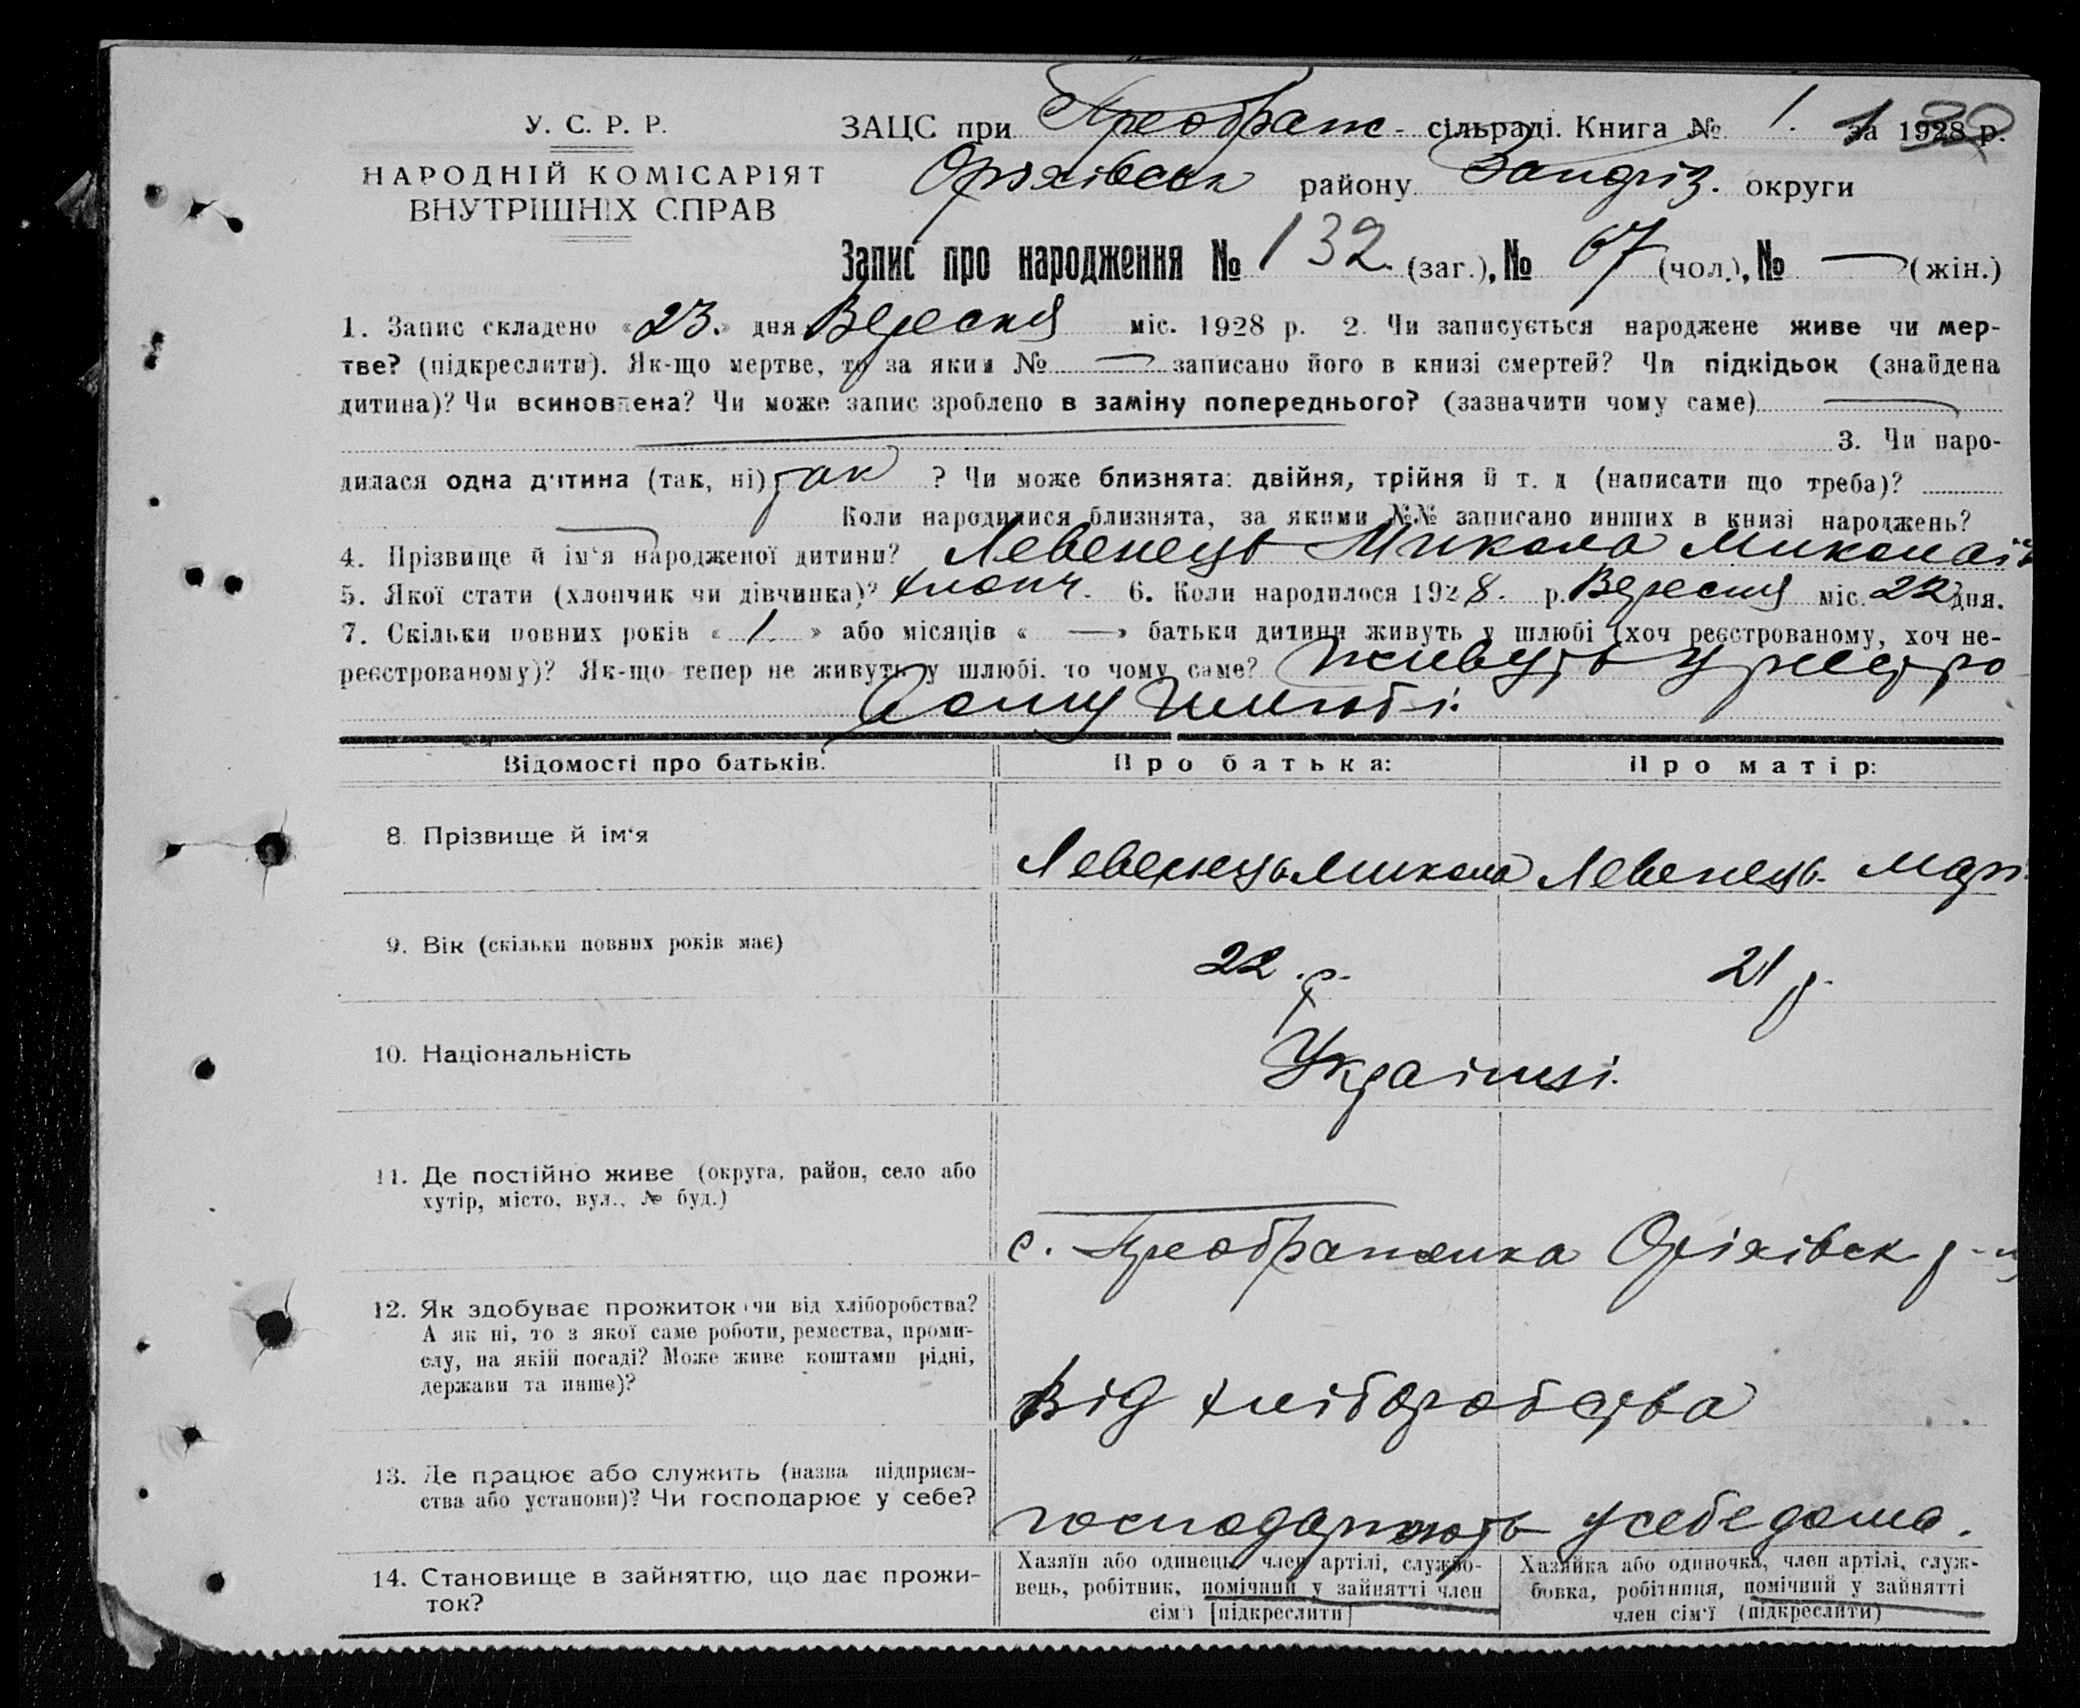 У. С. Р. Р.
НАРОДНІЙ КОМІСАРІЯТ
ВНУТРІШНІХ СПРАВ
ЗАЦС при Преображ- сільраді. Книга № 1. за 1928 р.
Оріхівськ району Запоріз. округи
Запис про народження № 132. (заг.), № 67 (чол.), № — (жін.)
1. Запис складено «23.» дня Вересня міс. 1928 р. 2. Чи записується народжене живе чи мер-
тве? (підкреслити). Як-що мертве, то за яким № — записано його в книзі смертей? Чи підкідьок (знайдена
дитина)? Чи всиновлена? Чи може запис зроблено в заміну попереднього? (зазначити чому саме) —
3. Чи наро-
дилася одна дитина (так, ні) так ? Чи може близнята: двійня, трійня й т. д (написати що треба)?
Коли народилися близнята, за якими №№ записано инших в книзі народжень?
4. Прізвище й ім'я народженої дитини? Левенець Микола Миколаїв
5. Якої стати (хлопчик чи дівчинка)? хлопч. 6. Коли народилося 1928. р. Вересня міс. 22 дня.
7. Скільки повних років « 1. » або місяців « — » батьки дитини живуть у шлюбі (хоч реєстрованому, хоч не-
реєстрованому)? Як-що тепер не живуть у шлюбі, то чому саме? живуть у реєстро
ваному шлюбі.
Відомості про батьків: Про батька: Про матір:
8. Прізвище й ім'я Левенець Микола Левенець Марі
9. Вік (скільки повних років має) 22 р. 21 р.
10. Національність Українці.
11. Де постійно живе (округа, район, село або
хутір, місто, вул., № буд.)
с. Преображенка Оріхівськ р-н
12. Як здобуває прожиток (чи від хліборобства?
А як ні, то з якої саме роботи, ремества, проми-
слу, на якій посаді? Може живе коштами рідні,
держави та инше)?
Від хліборобства
13. Де працює або служить (назва підприєм-
ства або установи)? Чи господарює у себе?
господарюють у себе дома.
14. Становище в зайняттю, що дає прожи-
ток?
Хазяїн або одинець, член артілі, службо-
вець, робітник, помічний у зайнятті член
сім'ї [підкреслити]
Хазяйка або одиночка, член артілі, служ-
бовка, робітниця, помічний у зайнятті
член сім'ї (підкреслити)